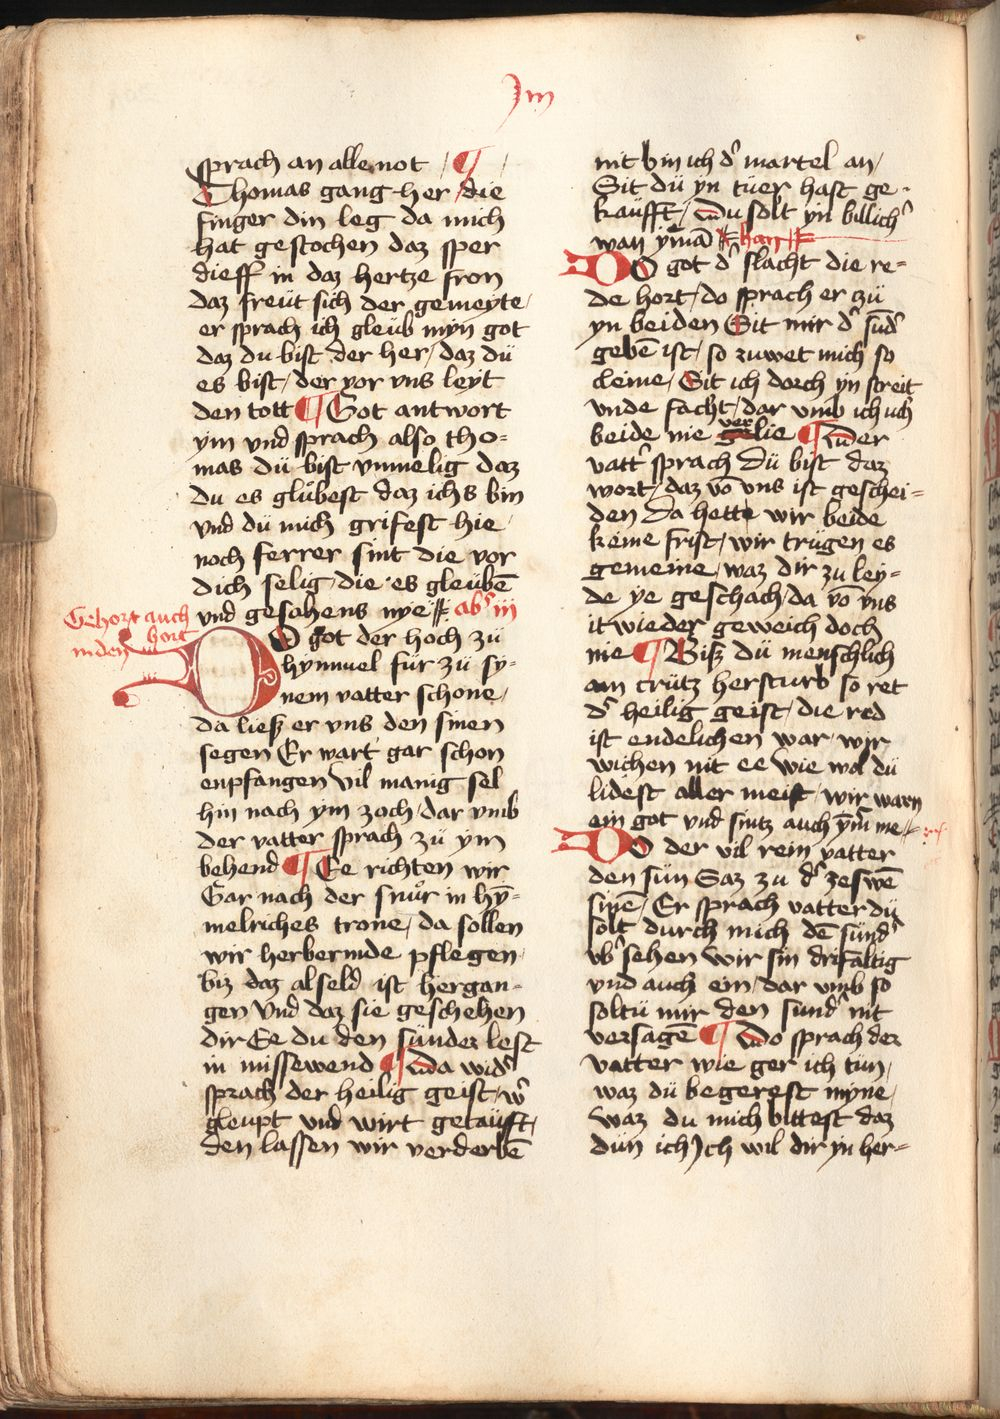 Jm
sprach an alle not / ¶ /
Thomas gang her / die
finger din leg da mich
hat gestochen daz sper
dieff in daz hertze fron
daz freüt sich der gemeyte /
er sprach ich gleüb myn got
daz du bist der her / daz dü
es bist / der vor vns leyt
den tott ¶ Got antwort
ym vnd sprach also tho=
mas dü bist vnmelig daz
du es glübest daz ichs bin
vnd dü mich grifest hie /
noch ferrer sint die vor
dich selig / die es gleübē
vnd gesahens nye abs iij
Gehort auch
hort
in den
DO got der hoch zü
hymmel für zü sy=
nem vatter schone /
da ließ er vns den sinen
segen Er wart gar schon
enpfangen vil manig sel
hin nach ym zoch / dar vmb
der vatter sprach zü ym
behend ¶ Ee richten wir
Gar nach der snůr in hȳ=
melriches trone / da sollen
wir herbermde pflegen /
biz daz alseld ist hergan=
gen Vnd daz sie geschehen
dir Ee du den sünder lest
in missewend ¶ Da widʾ
sprach der heilig geist / wʾ
gleupt vnd wirt getäüfft /
den lassen wir verderbē
nit bin ich dʾ martel an /
Sit dü yn tüer hast ge=
kaüfft / Du solt yn billichʾ
wan ymā han
DO got dʾ slacht die re=
de hort / do sprach er zü
yn beiden Sit mir dʾ sūdʾ
gebē ist / so zuwet mich so
cleine / Sit ich dorch yn streit
vnde facht / dar vmb ich uch
beide nie verlie ¶ Der
vattʾ sprach Dü bist daz
wort / daz vō vns ist geschei=
den Da hette wir beide
keine frist / wir trügen es
gemeine / waz dir zu ley=
de ye geschach / da vō vns
itwieder geweich doch
nie ¶ Bisz dü menschlich
am crütz hersturb so ret
dʾ heilig geist / die red
ist endelichen war / wir
wichen nit ee wie wol dü
lidest aller meist / wir warn
ein got vnd sintz auch ȳm̄ me
DO der vil rein vatter
den sün Saz zu dʾ zeswē
sinē / Er sprach vatter dü
solt durch mich dē sündʾ
vbʾsehen wir sin drifaltig
vnd auch ein / dar vmb so
soltü mir den sundʾ nit
versagē ¶ Do sprach der
vatter wie ger ich tün /
waz dü begerest myne /
waz du mich bittest daz
dün ich Jch wil dir jn her=